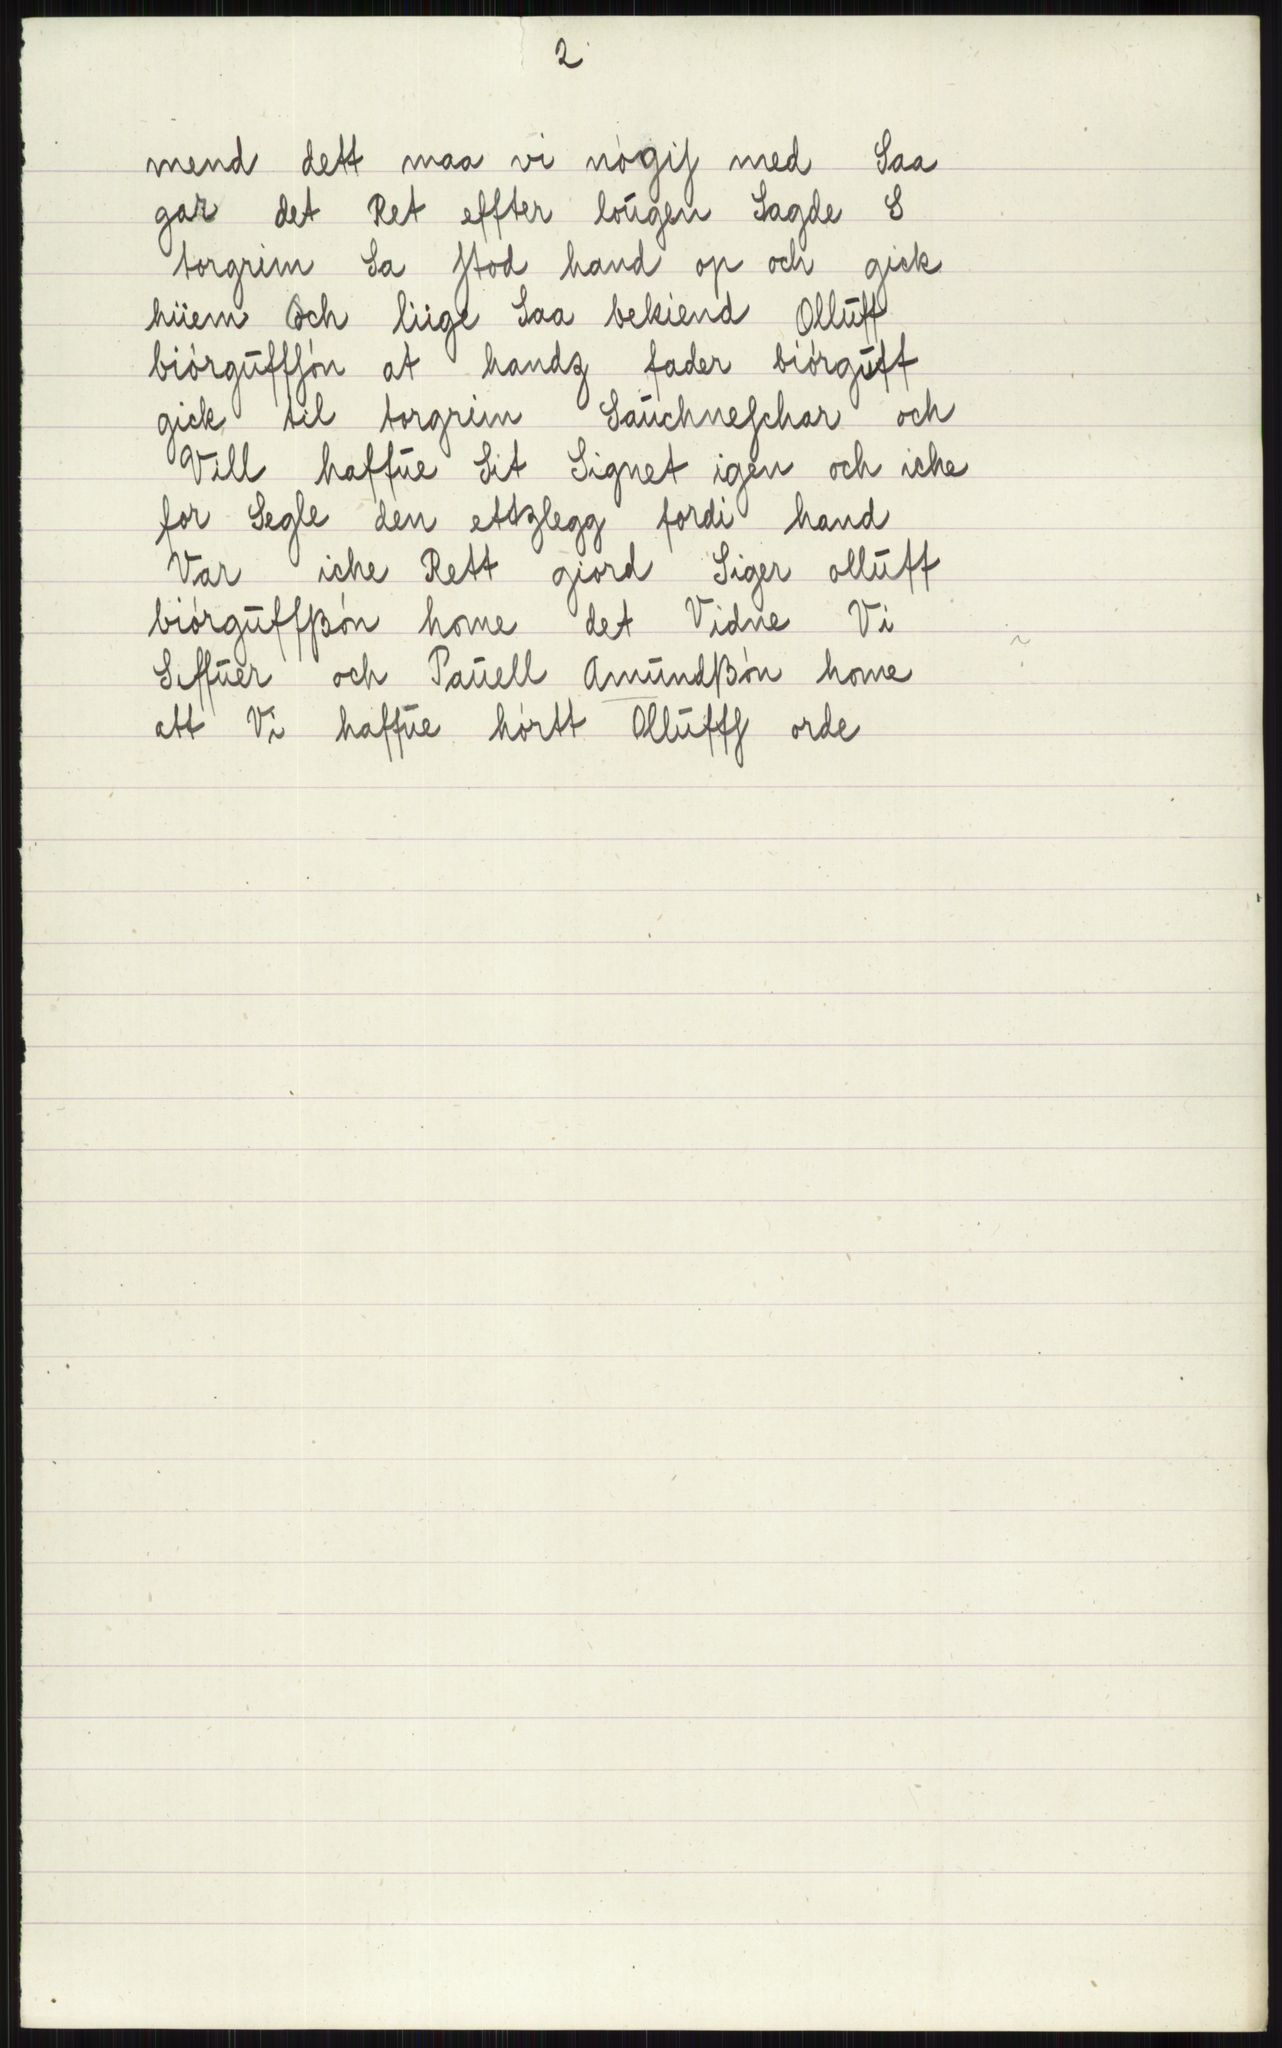 2
mend dett maa vi nógiſ med Saa
gar det Ret effter loŭgen Sagde S
torgrim Sa ſtod hand op och gick
hiiem och liige Saa bekiend Ollŭff
biórgŭffſón at handz fader biórgŭff
gick til torgrim Saŭchneſchar och
Vill haffŭe Sit Signet igen och iche
for Segle den ettzlegg fordi hand
Var iche Rett giord Siger ollŭff
biórgŭffſßón home det Vidne Vi
Siffŭer och Paŭell Amŭndßón home
att Vi haffŭe hórtt Ollŭffſ orde